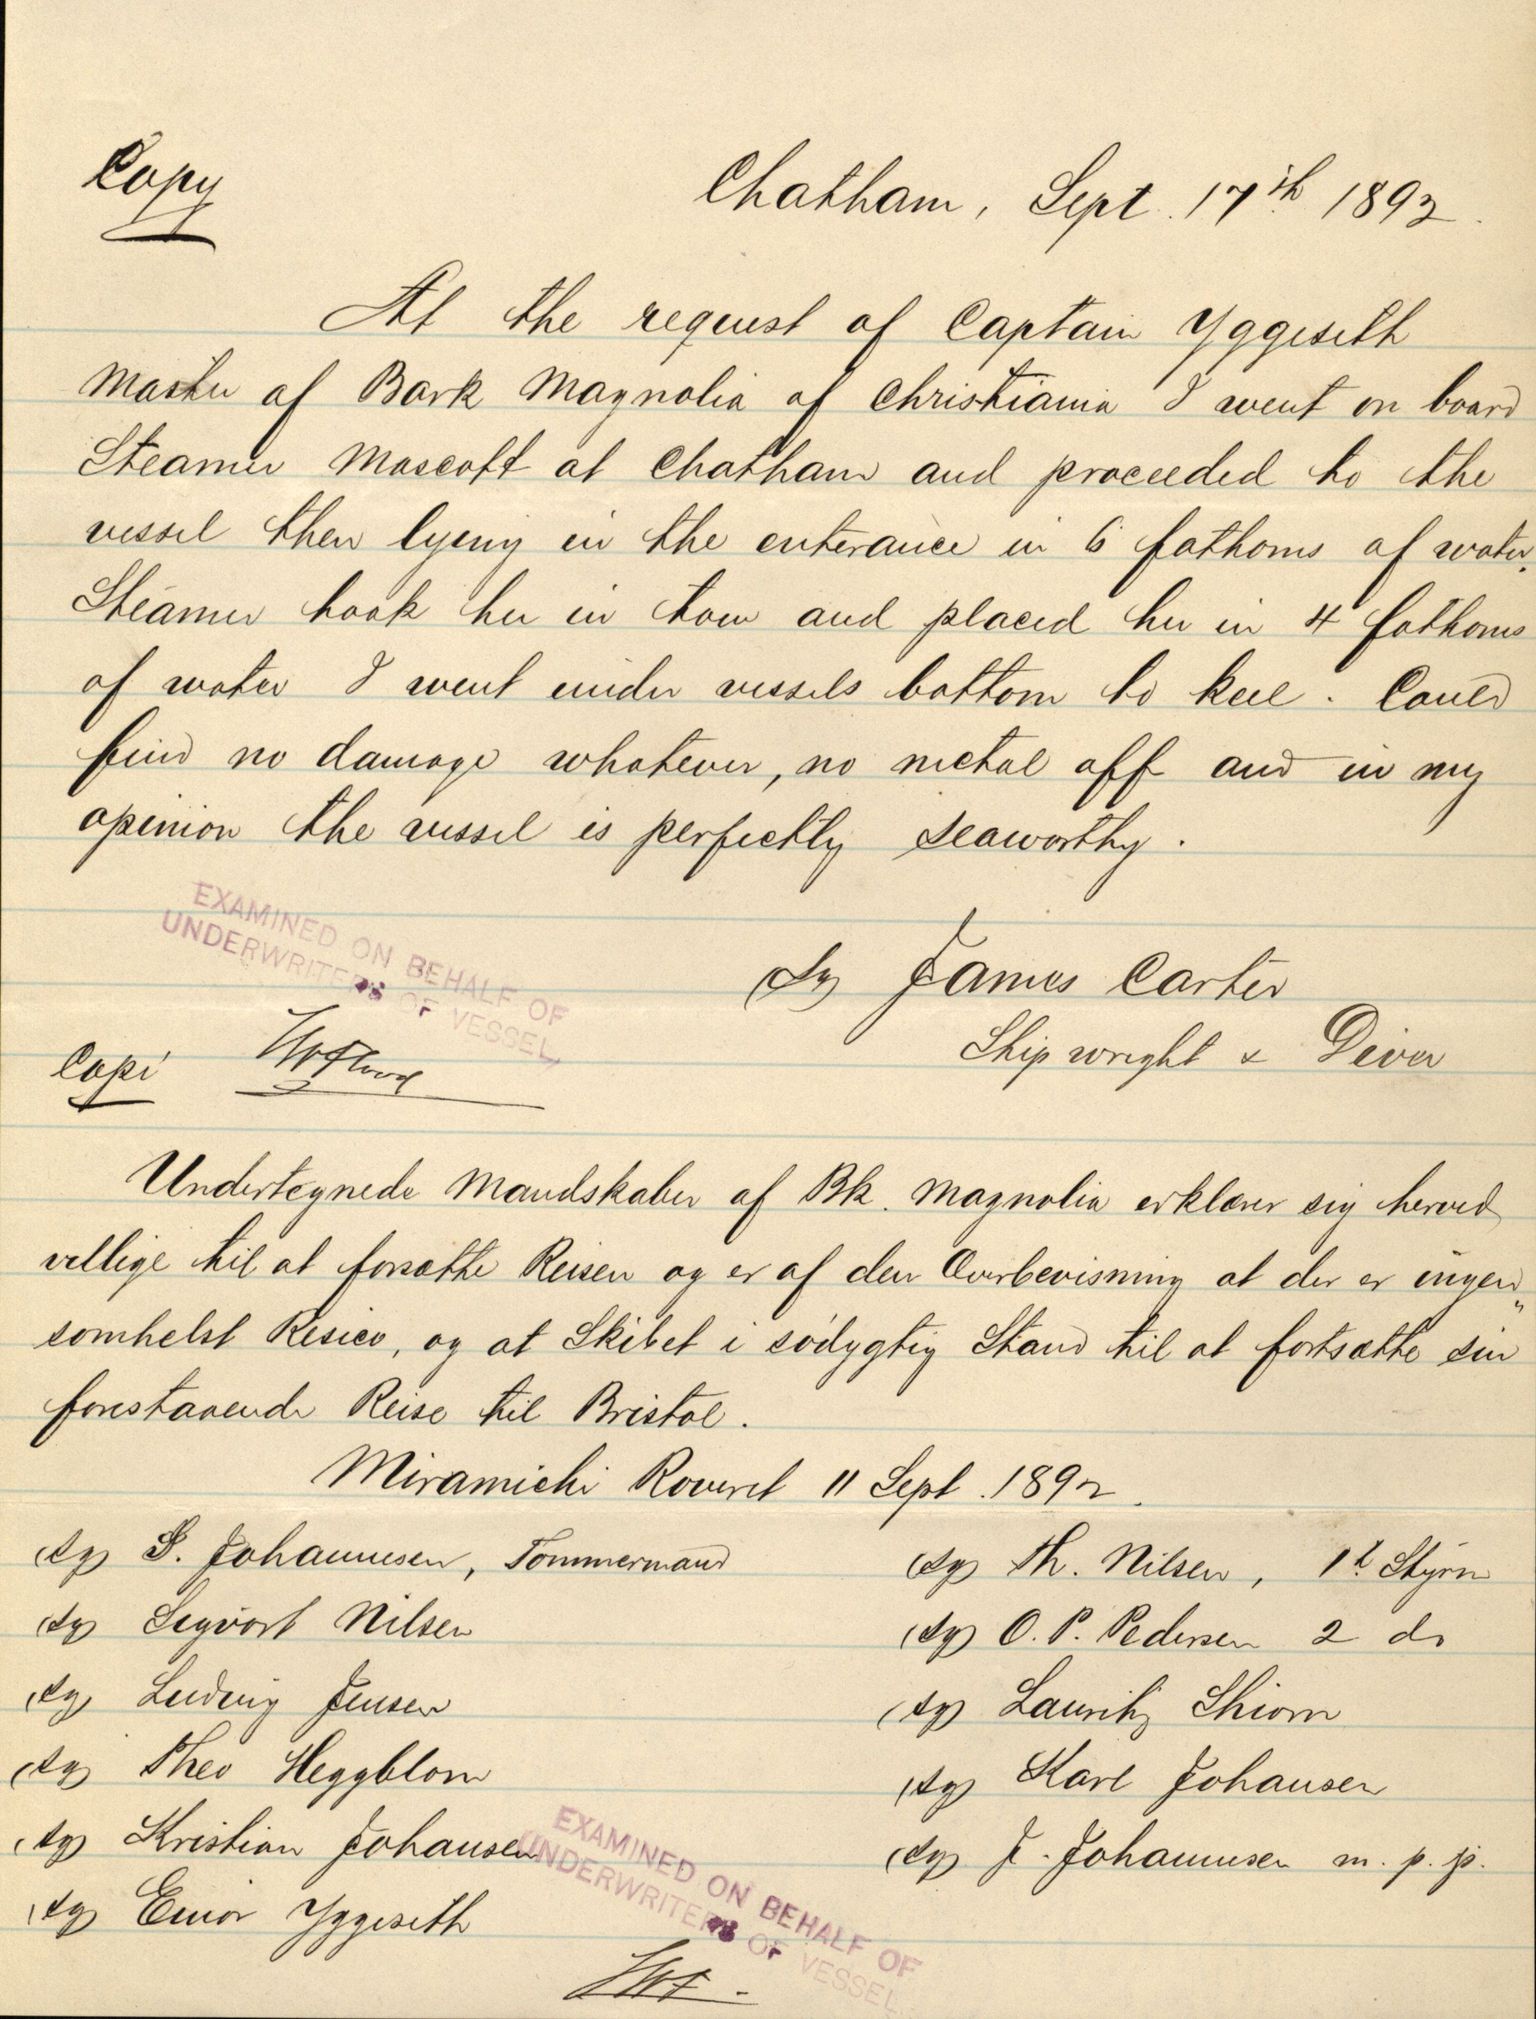 Copy
Chatham, Sept. 17th 1892.
At the request of Captain Yggeseth
Master of Bark Magnolia of Christiania I went on board
Steamer Mascott at Chatham and proceeded to the
vessel then lyeing in the enterance in 6 fathoms of water.
Steamer took her in tow and placed her in 4 fathoms
of water I went under vessels bottom to keel. Could
find no damage whatever, no metal off and in my
opinion the vessel is perfectly seaworthy.
EXAMINED ON BEHALF OF
UNDERWRITERS OF VESSEL
(Sg) James Carter
Shipwright & Diver
Copi
Undertegnede Mandskaber af Bk. Magnolia erklærer sig herved
villige til at forsætte Reisen og er af den Overbevisning at der er ingen"
somhelst Resico, og at Skibet i södygtig Stand til at fortsætte sin
forestaaende Reise til Bristol.
Miramichi Roveret 11 Sept. 1892.
(sg) S. Johannesen, Tommermand
(sg) Th. Nilsen, 1t Styrm
(sg) Sigvart Nilsen
(sg) O. P. Pedersen 2 do
(sg) Ludvig Jensen
(sg) Lauritz Shiorn
(sg) Theo Heggblom
(sg) Karl Johansen
(sg) Kristian Johansen
(sg) J. Johannesen m. p. p.
(sg) Einar Yggeseth
EXAMINED ON BEHALF OF
UNDERWRITERS OF VESSEL